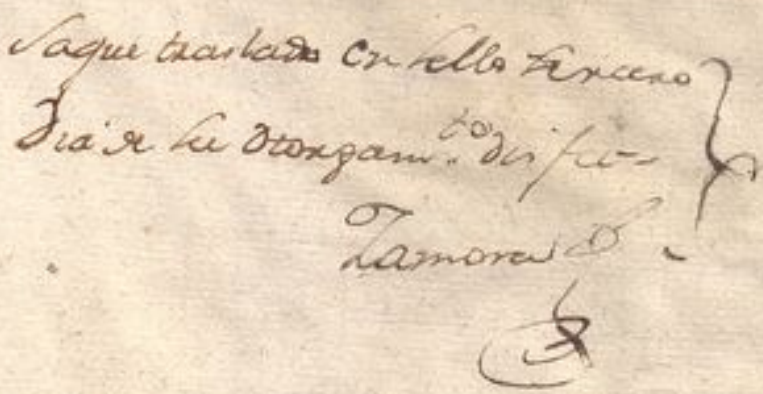 Saque traslado en sello tercero
dia de su otorgam.to doi fee=
Zamora